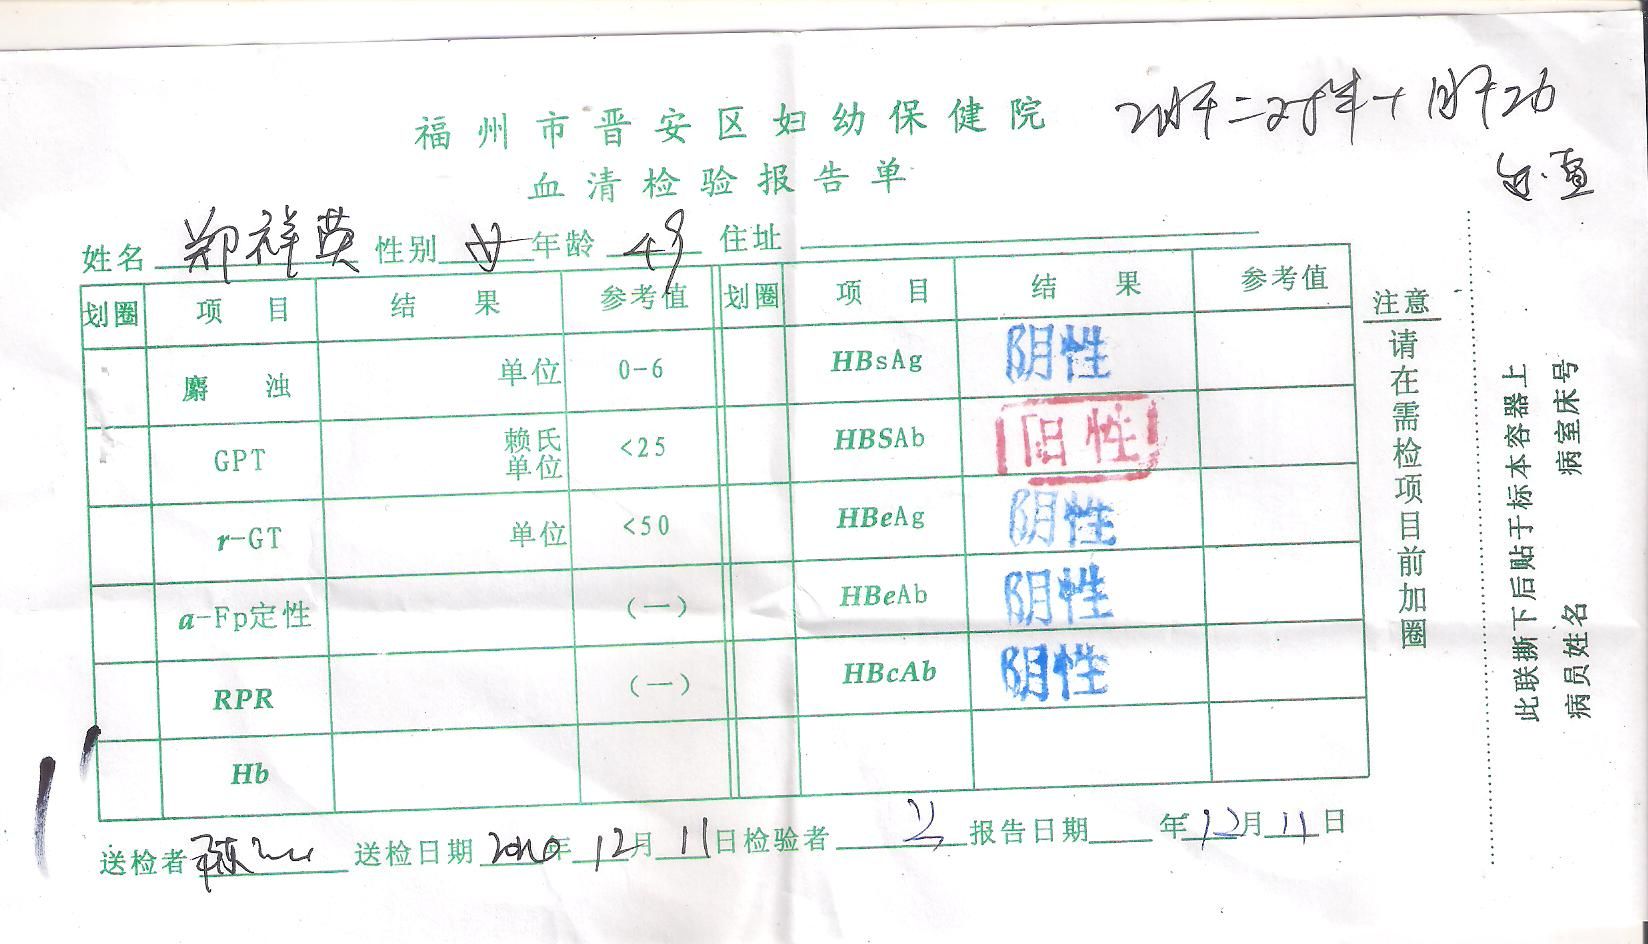 福州市晋安区妇幼保健院
血清检验报告单
姓名 郑祥英 性别 女 年龄 49 住址
划圈 项目 结果 参考值 划圈 项目 结果 参考值
麝浊 单位 0-6 HBsAg 阴性
GPT 赖氏单位 <25 HBSAb 阳性
r-GT 单位 <50 HBeAg 阴性
a-Fp定性 (一) HBeAb 阴性
RPR (一) HBcAb 阴性
Hb
送检者 陈 送检日期 2010年 12月 11日 检验者 报告日期 年 12月 11日
注意
请在需检项目前加圈
此联撕下后贴于标本容器上
病员姓名 病室床号